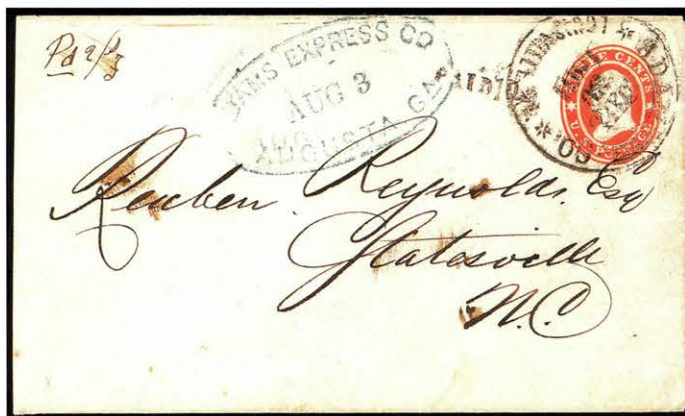 Pd 2/3
ADAMS EXPRESS CO
AUG 3
AUGUSTA GA
PAID 10
THREE CENTS
U.S. POSTAGE
Reuben Reynolds, Esq
Statesville
N.C.